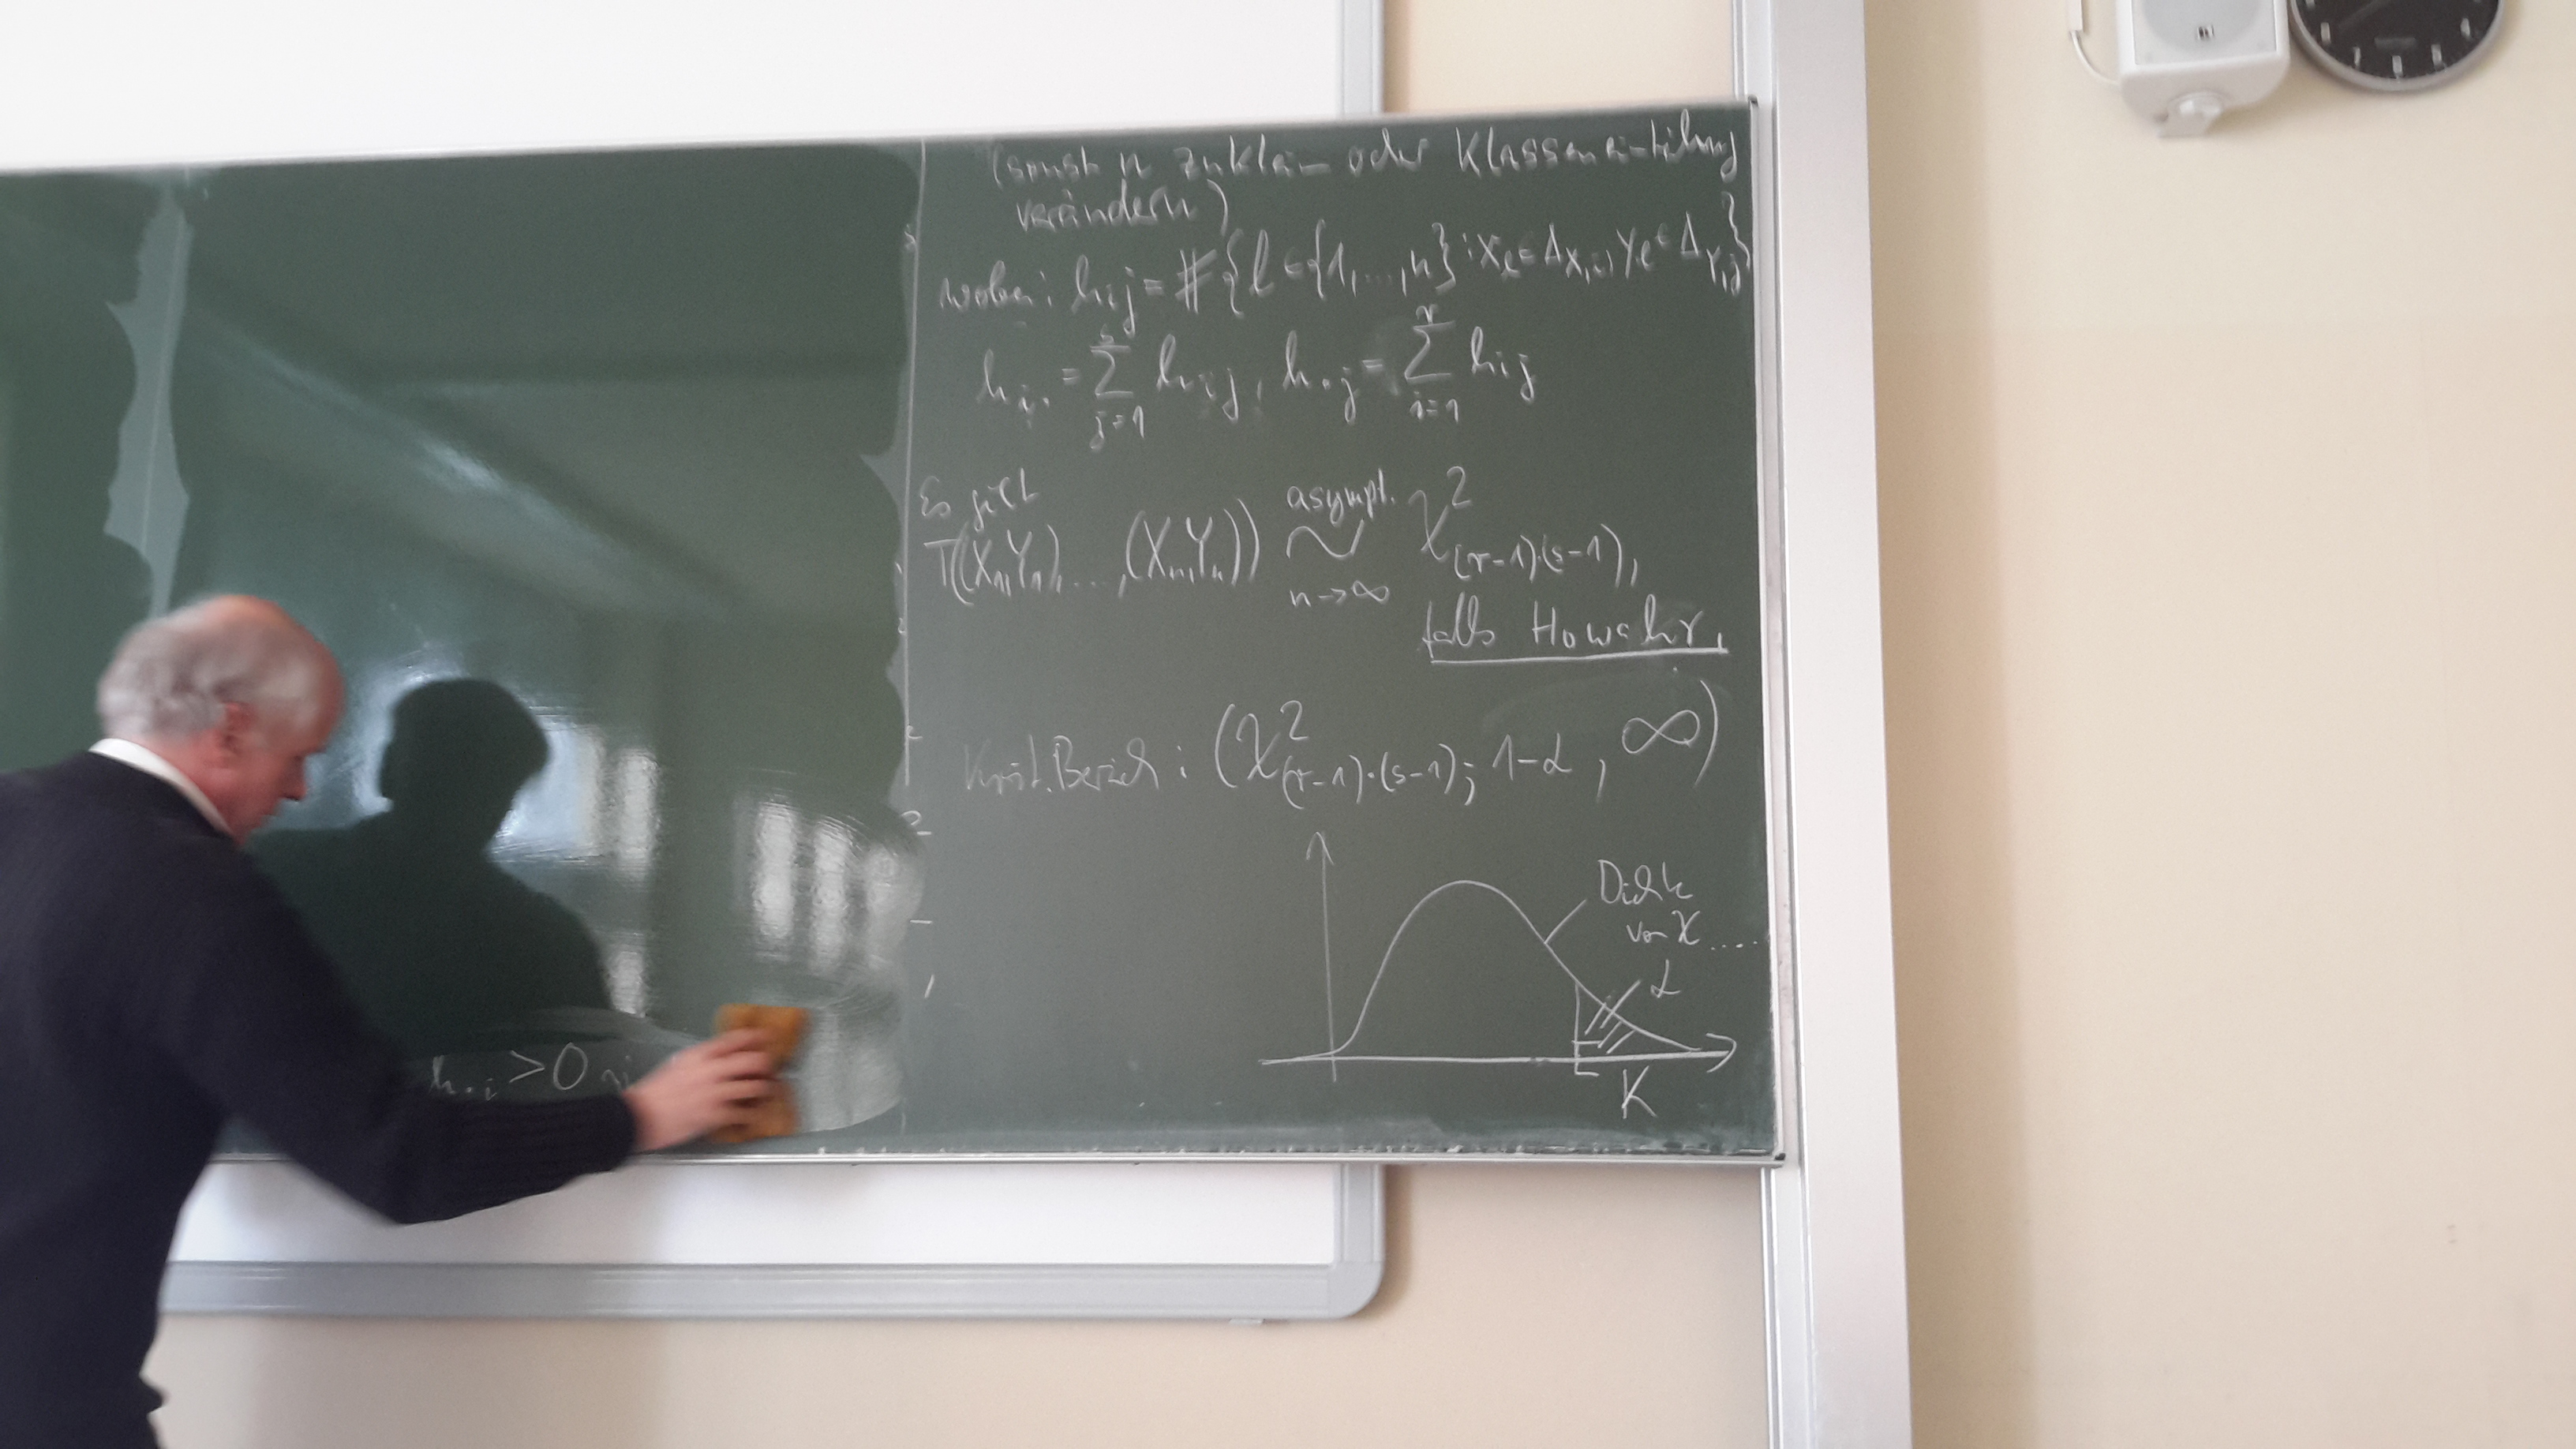 (sonst n zu klein oder Klasseneinteilung
verändern)
wobei: h_ij = #{l ∈ {1,...,n} : X_l ∈ Δ_X,i, Y_l ∈ Δ_Y,j}
h_i. = Σ_{j=1}^{s} h_ij, h_.j = Σ_{i=1}^{r} h_ij
Es gilt
T((X_1,Y_1),...,(X_n,Y_n)) ~ asympt. n→∞ χ²_(r-1)·(s-1),
falls H₀ wahr,
Krit. Bereich: (χ²_(r-1)·(s-1); 1-α, ∞)
Dichte
von χ....
α
K
h.j >0
8 7 6 5 4